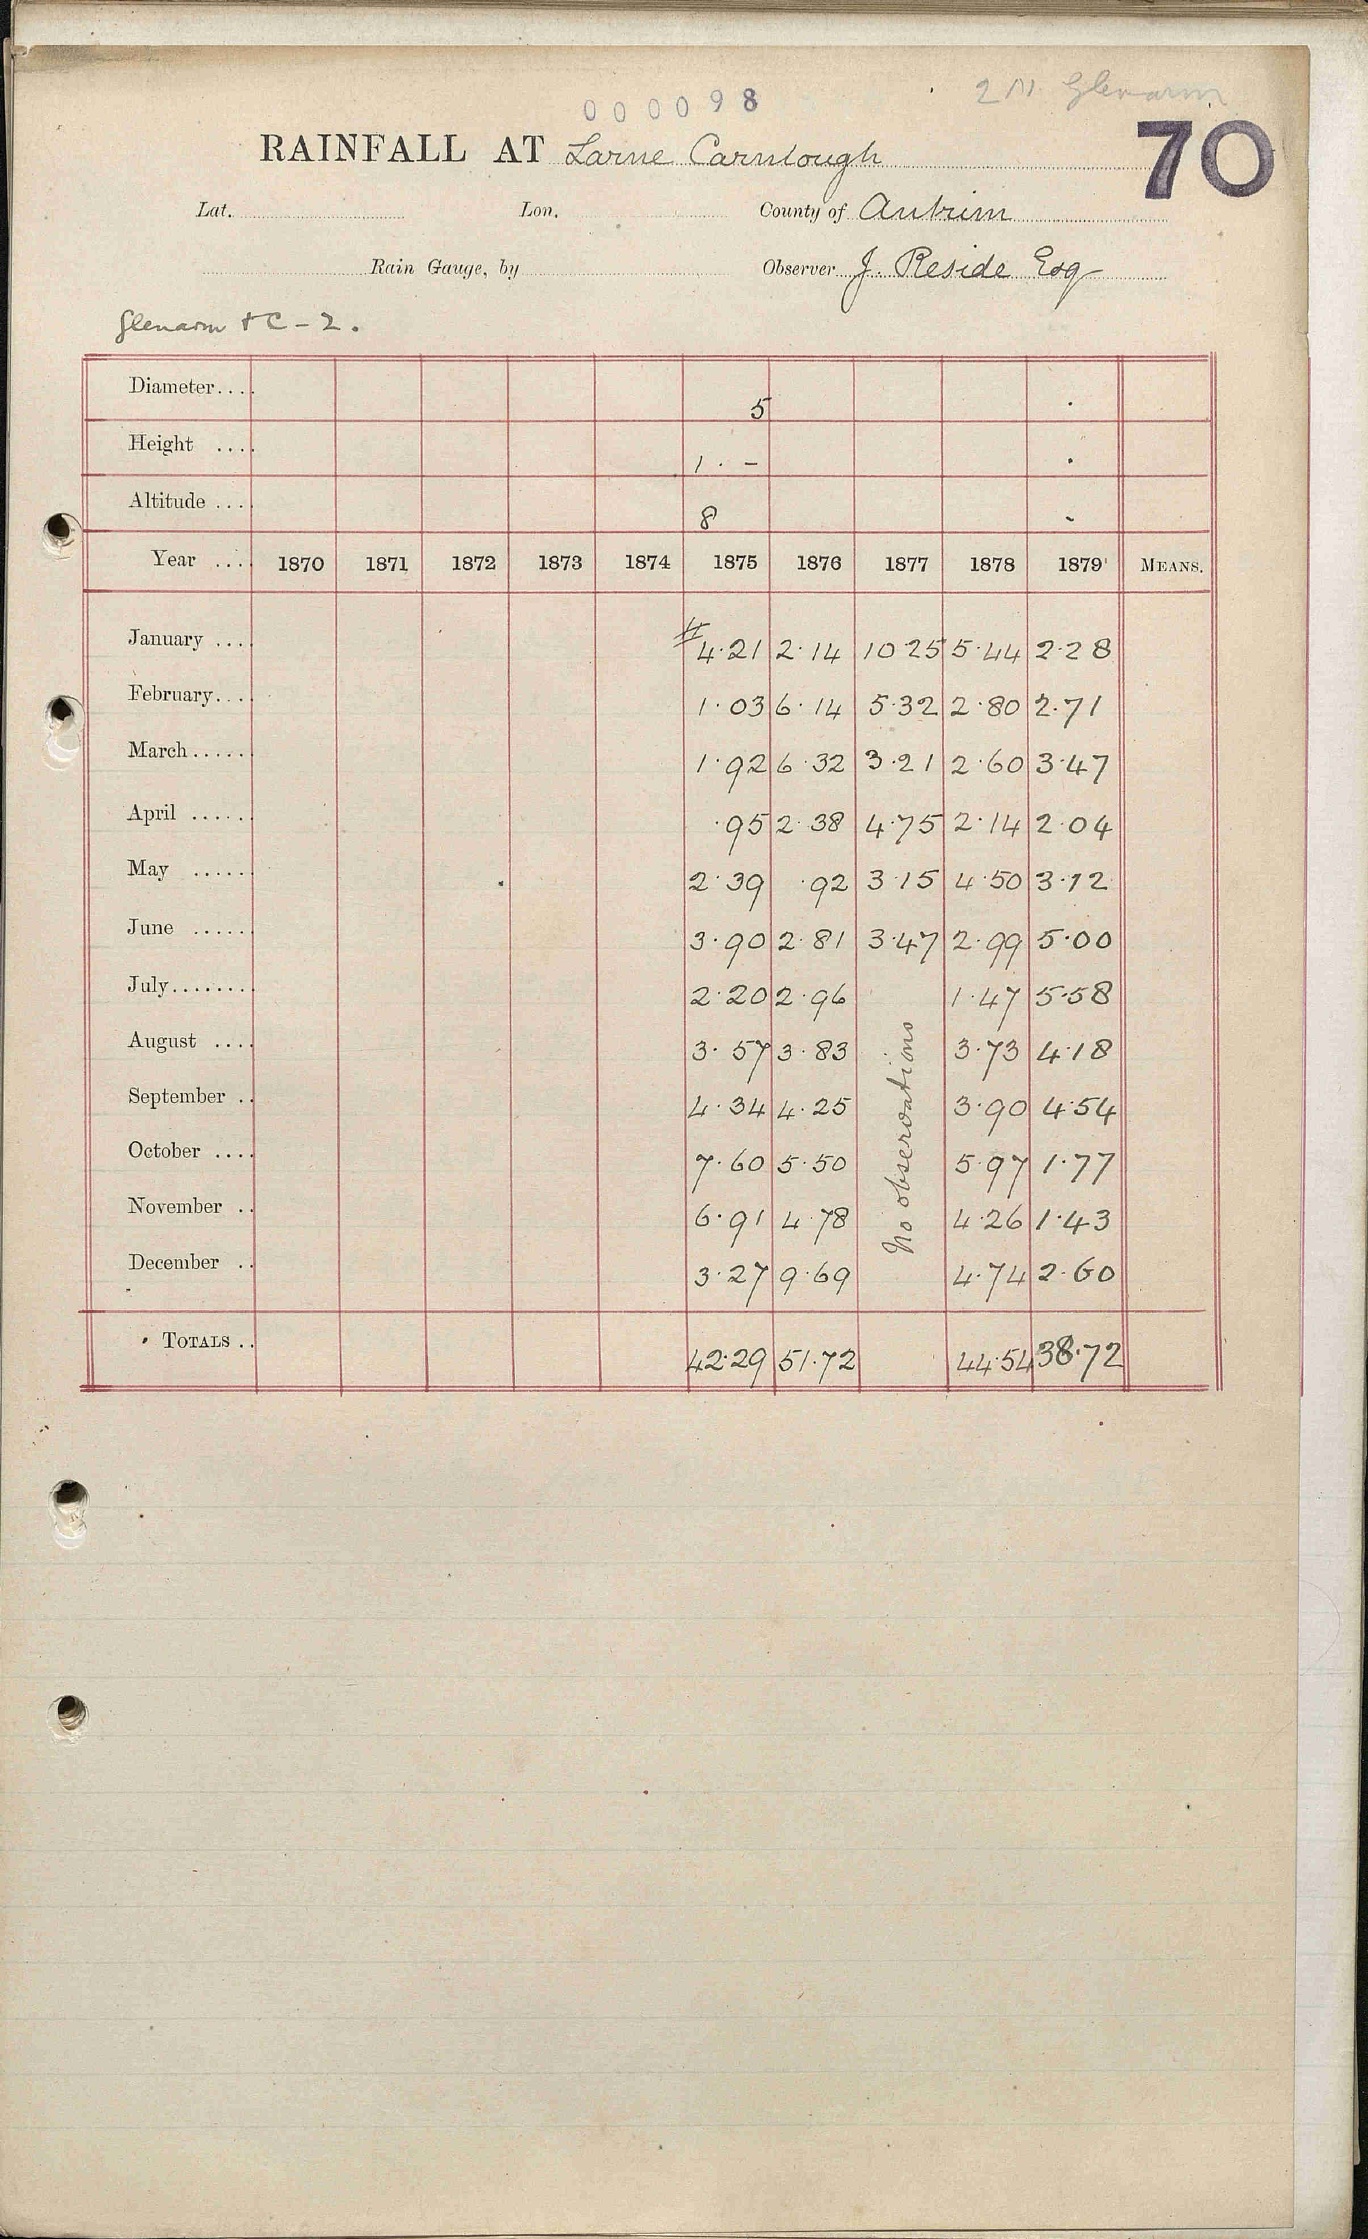 2 M Glenarm
000098
70
RAINFALL AT Larne Carnlough
Lat. Lon. County of Antrim
Rain Gauge, by Observer J. Reside Esq
Glenarm + C - 2.
Diameter.... 5 .
Height .... 1 . - .
Altitude .... 8 -
Year .... 1870 1871 1872 1873 1874 1875 1876 1877 1878 1879 MEANS.
January .... # 4.21 2.14 10 25 5.44 2.28
February.... 1.03 6.14 5.32 2.80 2.71
March...... 1.92 6.32 3.21 2.60 3.47
April ...... .95 2.38 4.75 2.14 2.04
May ...... 2.39 .92 3.15 4.50 3.12
June ...... 3.90 2.81 3.47 2.99 5.00
July........ 2.20 2.96 1.47 5.58
August .... 3.57 3.83 3.73 4.18
September .. 4.34 4.25 3.90 4.54
October .... 7.60 5.50 5.97 1.77
November .. 6.91 4.78 4.26 1.43
December .. 3.27 9.69 4.74 2.60
No observations
TOTALS .. 42.29 51.72 44.54 38.72